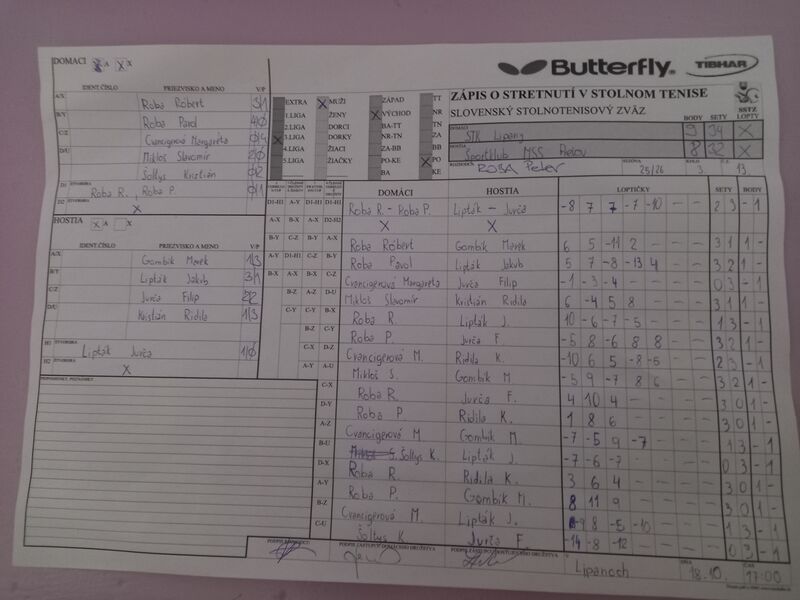 DOMÁCI A X
Butterfly TIBHAR
IDENT. ČÍSLO PRIEZVISKO A MENO V/P
A/X Roba Róbert 3/1
B/Y Roba Pavol 4/0
C/Z Cvancigerová Margaréta 0/4
D/U Mikloš Slavomír 2/0
Šoltys Kristián 0/2
D1 ŠTVORHRA Roba R., Roba P. 0/1
X
HOSTIA A X
IDENT. ČÍSLO PRIEZVISKO A MENO V/P
A/X Gombík Marek 1/3
B/Y Lipták Jakub 3/1
C/Z Jurča Filip 2/2
D/U Kristián Ridila 1/3
H1 ŠTVORHRA Lipták Jurča 1/0
H2 X
PRIPOMIENKY, POZNÁMKY
EXTRA X MUŽI ZÁPAD TT
1.LIGA ŽENY X VÝCHOD NR
2.LIGA DORCI BA-TT TN
X 3.LIGA DORKY NR-TN ZA
4.LIGA ŽIACI ZA-BB BB
5.LIGA ŽIAČKY PO-KE X PO
BA KE
ZÁPIS O STRETNUTÍ V STOLNOM TENISE
SLOVENSKÝ STOLNOTENISOVÝ ZVÄZ
BODY SETY SSTZ LOPTY
DOMÁCI STK Lipany 9 34 X
HOSTIA Sportklub MSS Prešov 8 32 X
ROZHODCA ROBA Peter SEZÓNA 25/26 KOLO 3. Č.Z. 13.
DOMÁCI HOSTIA LOPTIČKY SETY BODY
Roba R - Roba P. Lipták - Jurča -8 7 7 -7 -10 - - 2 3 - 1
X X
Roba Róbert Gombík Marek 6 5 -11 2 - - - 3 1 1 -
Roba Pavol Lipták Jakub 5 7 -8 -13 4 - - 3 2 1 -
Cvancigerová Margaréta Jurča Filip -1 -3 -4 - - - - 0 3 - 1
Mikloš Slavomír Kristián Ridila 6 -4 5 8 - - - 3 1 1 -
Roba R. Lipták J. 10 -6 -7 -5 - - - 1 3 - 1
Roba P. Jurča F. -5 8 -6 8 8 - - 3 2 1 -
Cvancigerová M. Ridila K. -10 6 5 -8 -5 - - 2 3 - 1
Mikloš S. Gombík M -5 9 -7 8 6 - - 3 2 1 -
Roba R. Jurča F. 4 10 4 - - - - 3 0 1 -
Roba P. Ridila K. 1 8 6 - - - - 3 0 1 -
Cvancigerová M Gombík M. -7 -5 9 -7 - - - 1 3 - 1
Šoltys K. Lipták J. -7 -6 -7 - - - - 0 3 - 1
Roba R. Ridila K. 3 6 4 - - - - 3 0 1 -
Roba P. Gombík M. 8 11 9 - - - - 3 0 1 -
Cvancigerová M. Lipták J. -9 8 -5 -10 - - - 1 3 - 1
Šoltys K Jurča F. -14 -8 -12 - - - - 0 3 - 1
PODPIS ROZHODCU PODPIS ZÁSTUPCU DOMÁCEHO DRUŽSTVA PODPIS ZÁSTUPCU HOSŤUJÚCEHO DRUŽSTVA
V Lipanoch DŇA 18.10. ČAS 17:00